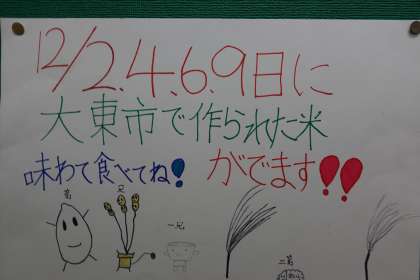 12/2.4.6.9日に
大東市で作られた米
味わて食べてね! がでます!!